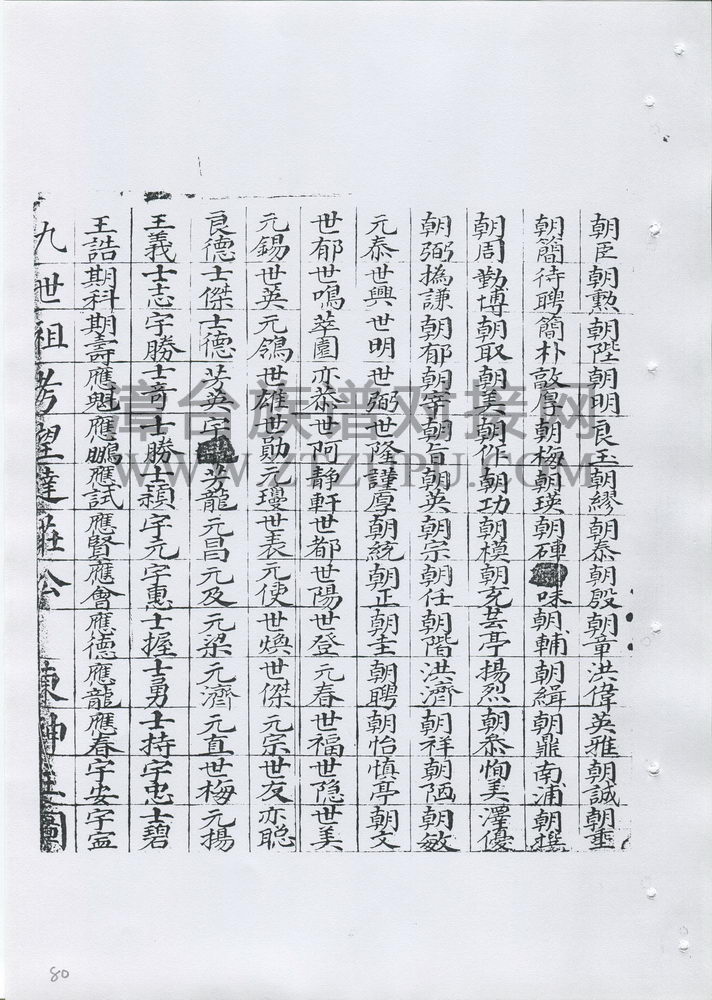 朝臣朝勲朝陛朝明良玉朝繆朝泰朝殷朝章洪偉英雅朝誠朝垂
朝簡待聘簡朴敦厚朝梅朝瑛朝磚味朝輔朝緝朝鼎南浦朝撰
朝周勤博朝取朝美朝作朝功朝模朝充芸亭揚烈朝恭恂美澤優
朝弼撝謙朝郁朝宰朝旨朝英朝宗朝任朝階洪濟朝祥朝陋朝敏
元泰世興世明世弼世隆謹厚朝統朝正朝圭朝聘朝怡慎亭朝文
世郁世鳴萃園亦恭世阿静軒世都世陽世登元春世福世隐世美
元錫世英元鴒世雄世勛元瓊世表元使世煥世傑元宗世友亦聪
良德士傑士德芳英宇芳龍元昌元及元梁元濟元直世梅元揚
王義士志宇勝士奇士勝士穎宇元宇惠士握士勇士持宇忠士碧
王誥期科期壽應魁應鵬應試應賢應會應德應龍應春宇安宇寍
九世祖考望達莊公
漳台族谱对接网
WWW.ZTZUPU.COM
80